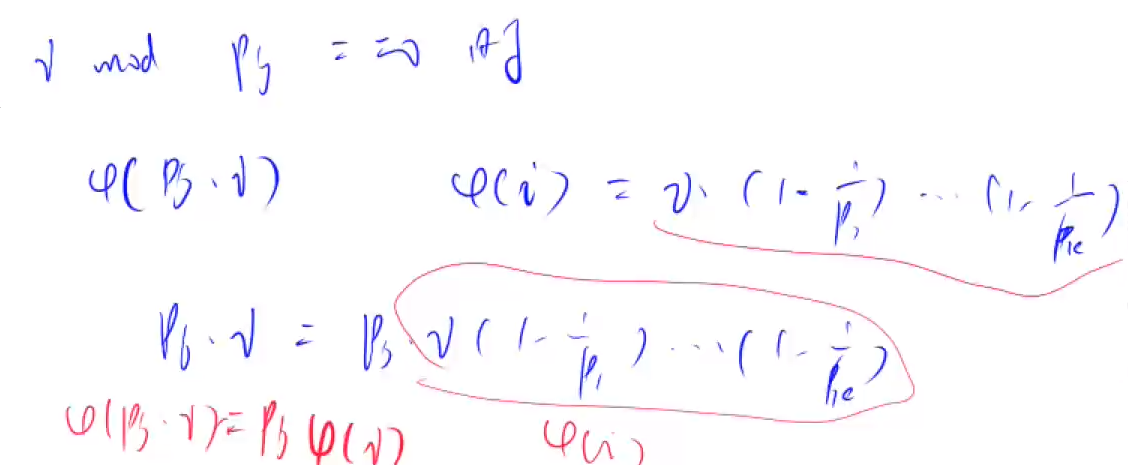 i mod pj == 0 时
φ(pj · i)    φ(i) = i · (1 - 1/p1) ... (1 - 1/pk)
pj · i = pj · i (1 - 1/p1) ... (1 - 1/pk)
φ(pj · i) = pj φ(i)    φ(i)